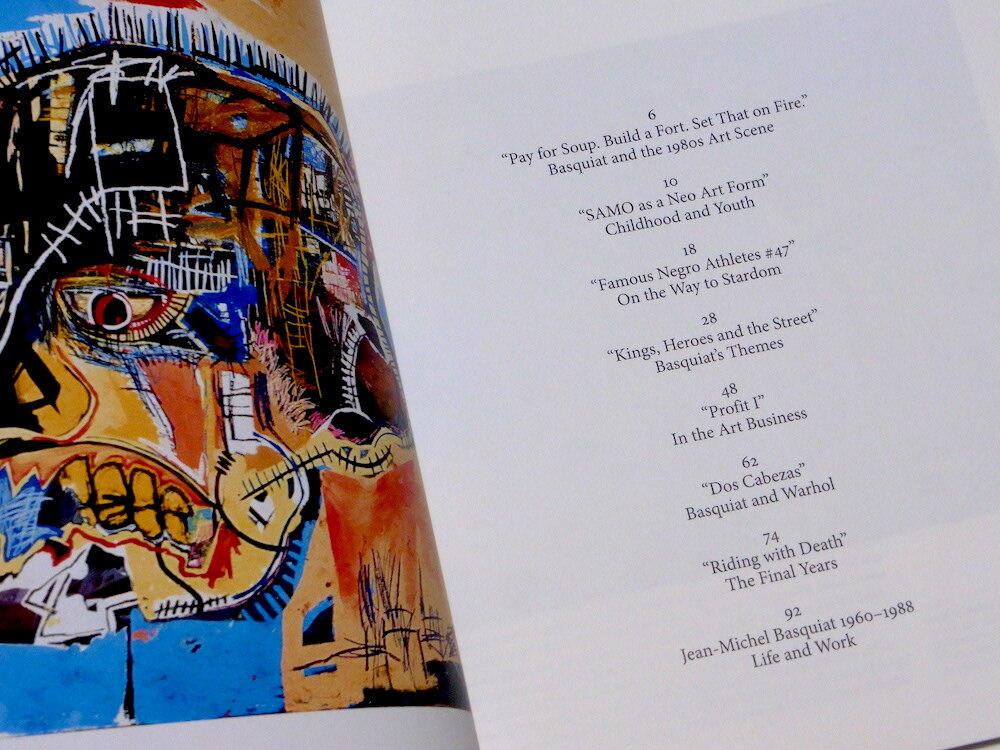 6
“Pay for Soup. Build a Fort. Set That on Fire.”
Basquiat and the 1980s Art Scene
10
“SAMO as a Neo Art Form”
Childhood and Youth
18
“Famous Negro Athletes #47”
On the Way to Stardom
28
“Kings, Heroes and the Street”
Basquiat’s Themes
48
“Profit I”
In the Art Business
62
“Dos Cabezas”
Basquiat and Warhol
74
“Riding with Death”
The Final Years
92
Jean-Michel Basquiat 1960–1988
Life and Work